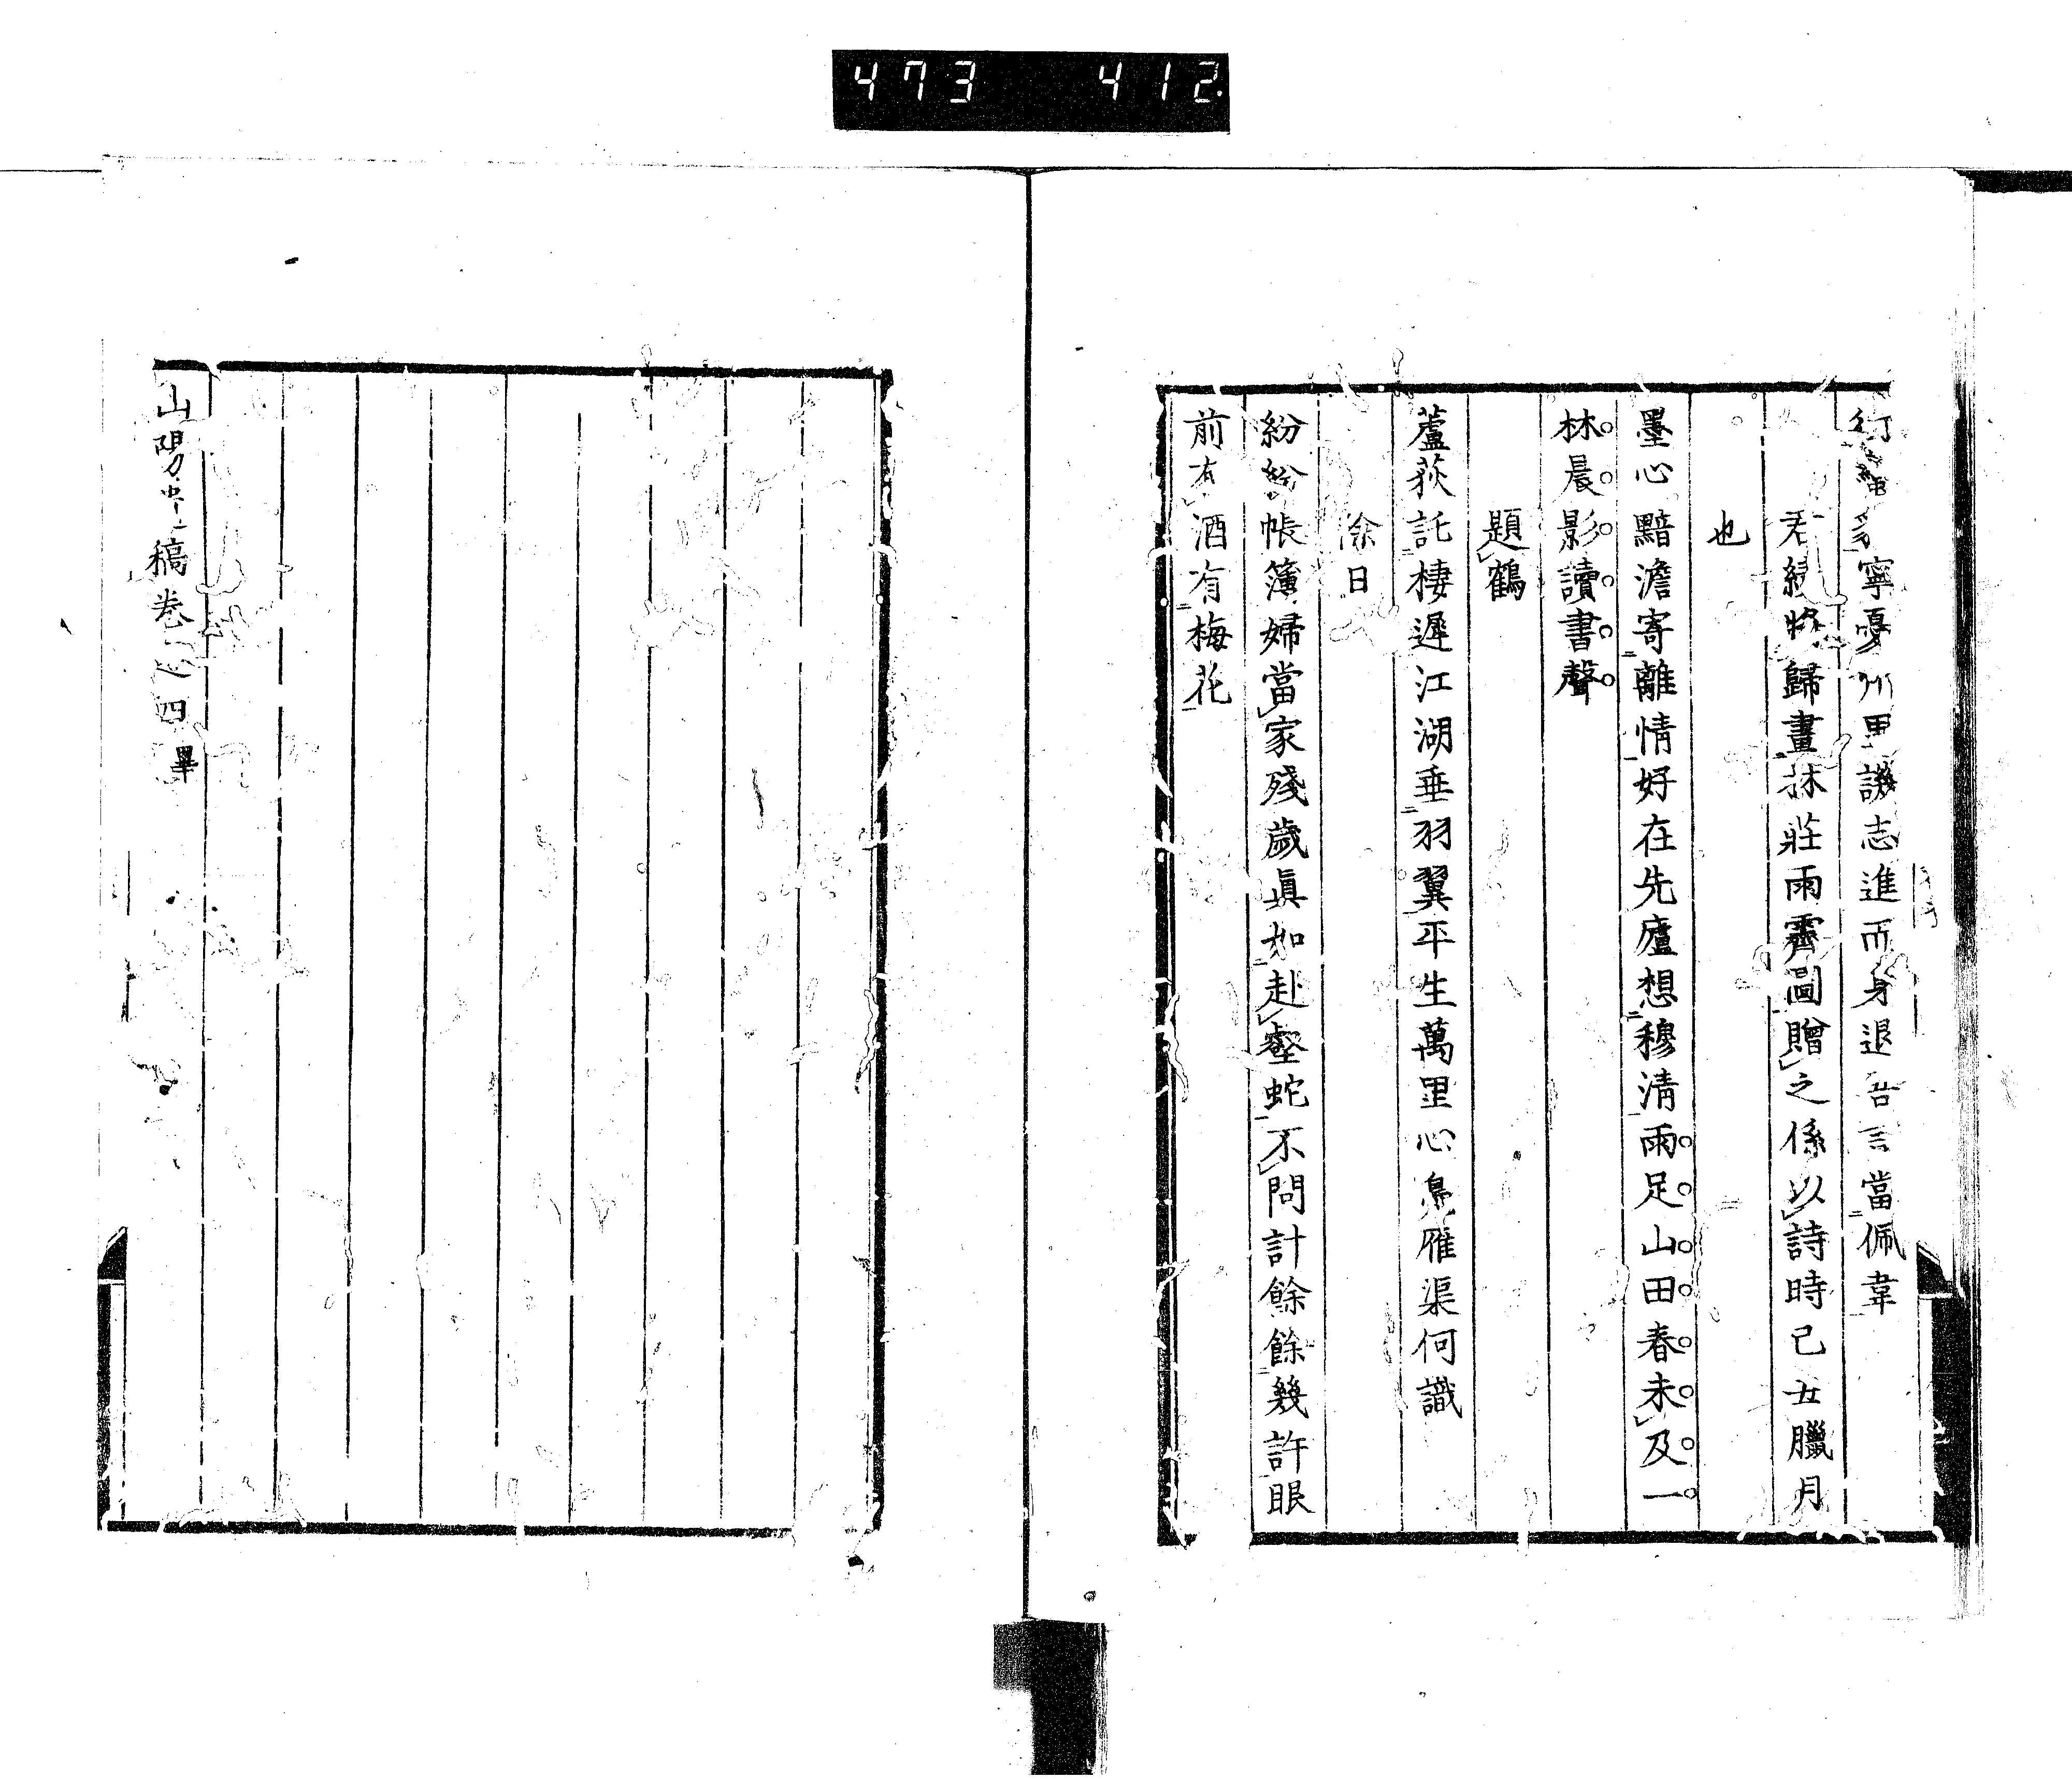 473 412
行縄豸寧憂州里譏志進而身退吾言當佩韋
君績將歸畫抹莊雨霽圖贈之係以詩時己丑臘月
也
墨心黯澹寄離情好在先廬想穆清雨足山田春未及一
林晨影讀書聲
題鶴
蘆荻託棲遲江湖垂羽翼平生萬里心鳧雁渠何識
除日
紛紛帳簿婦當家殘歲眞如赴壑蛇不問計餘餘幾許眼
前有酒有梅花
山陽 稿卷之四畢